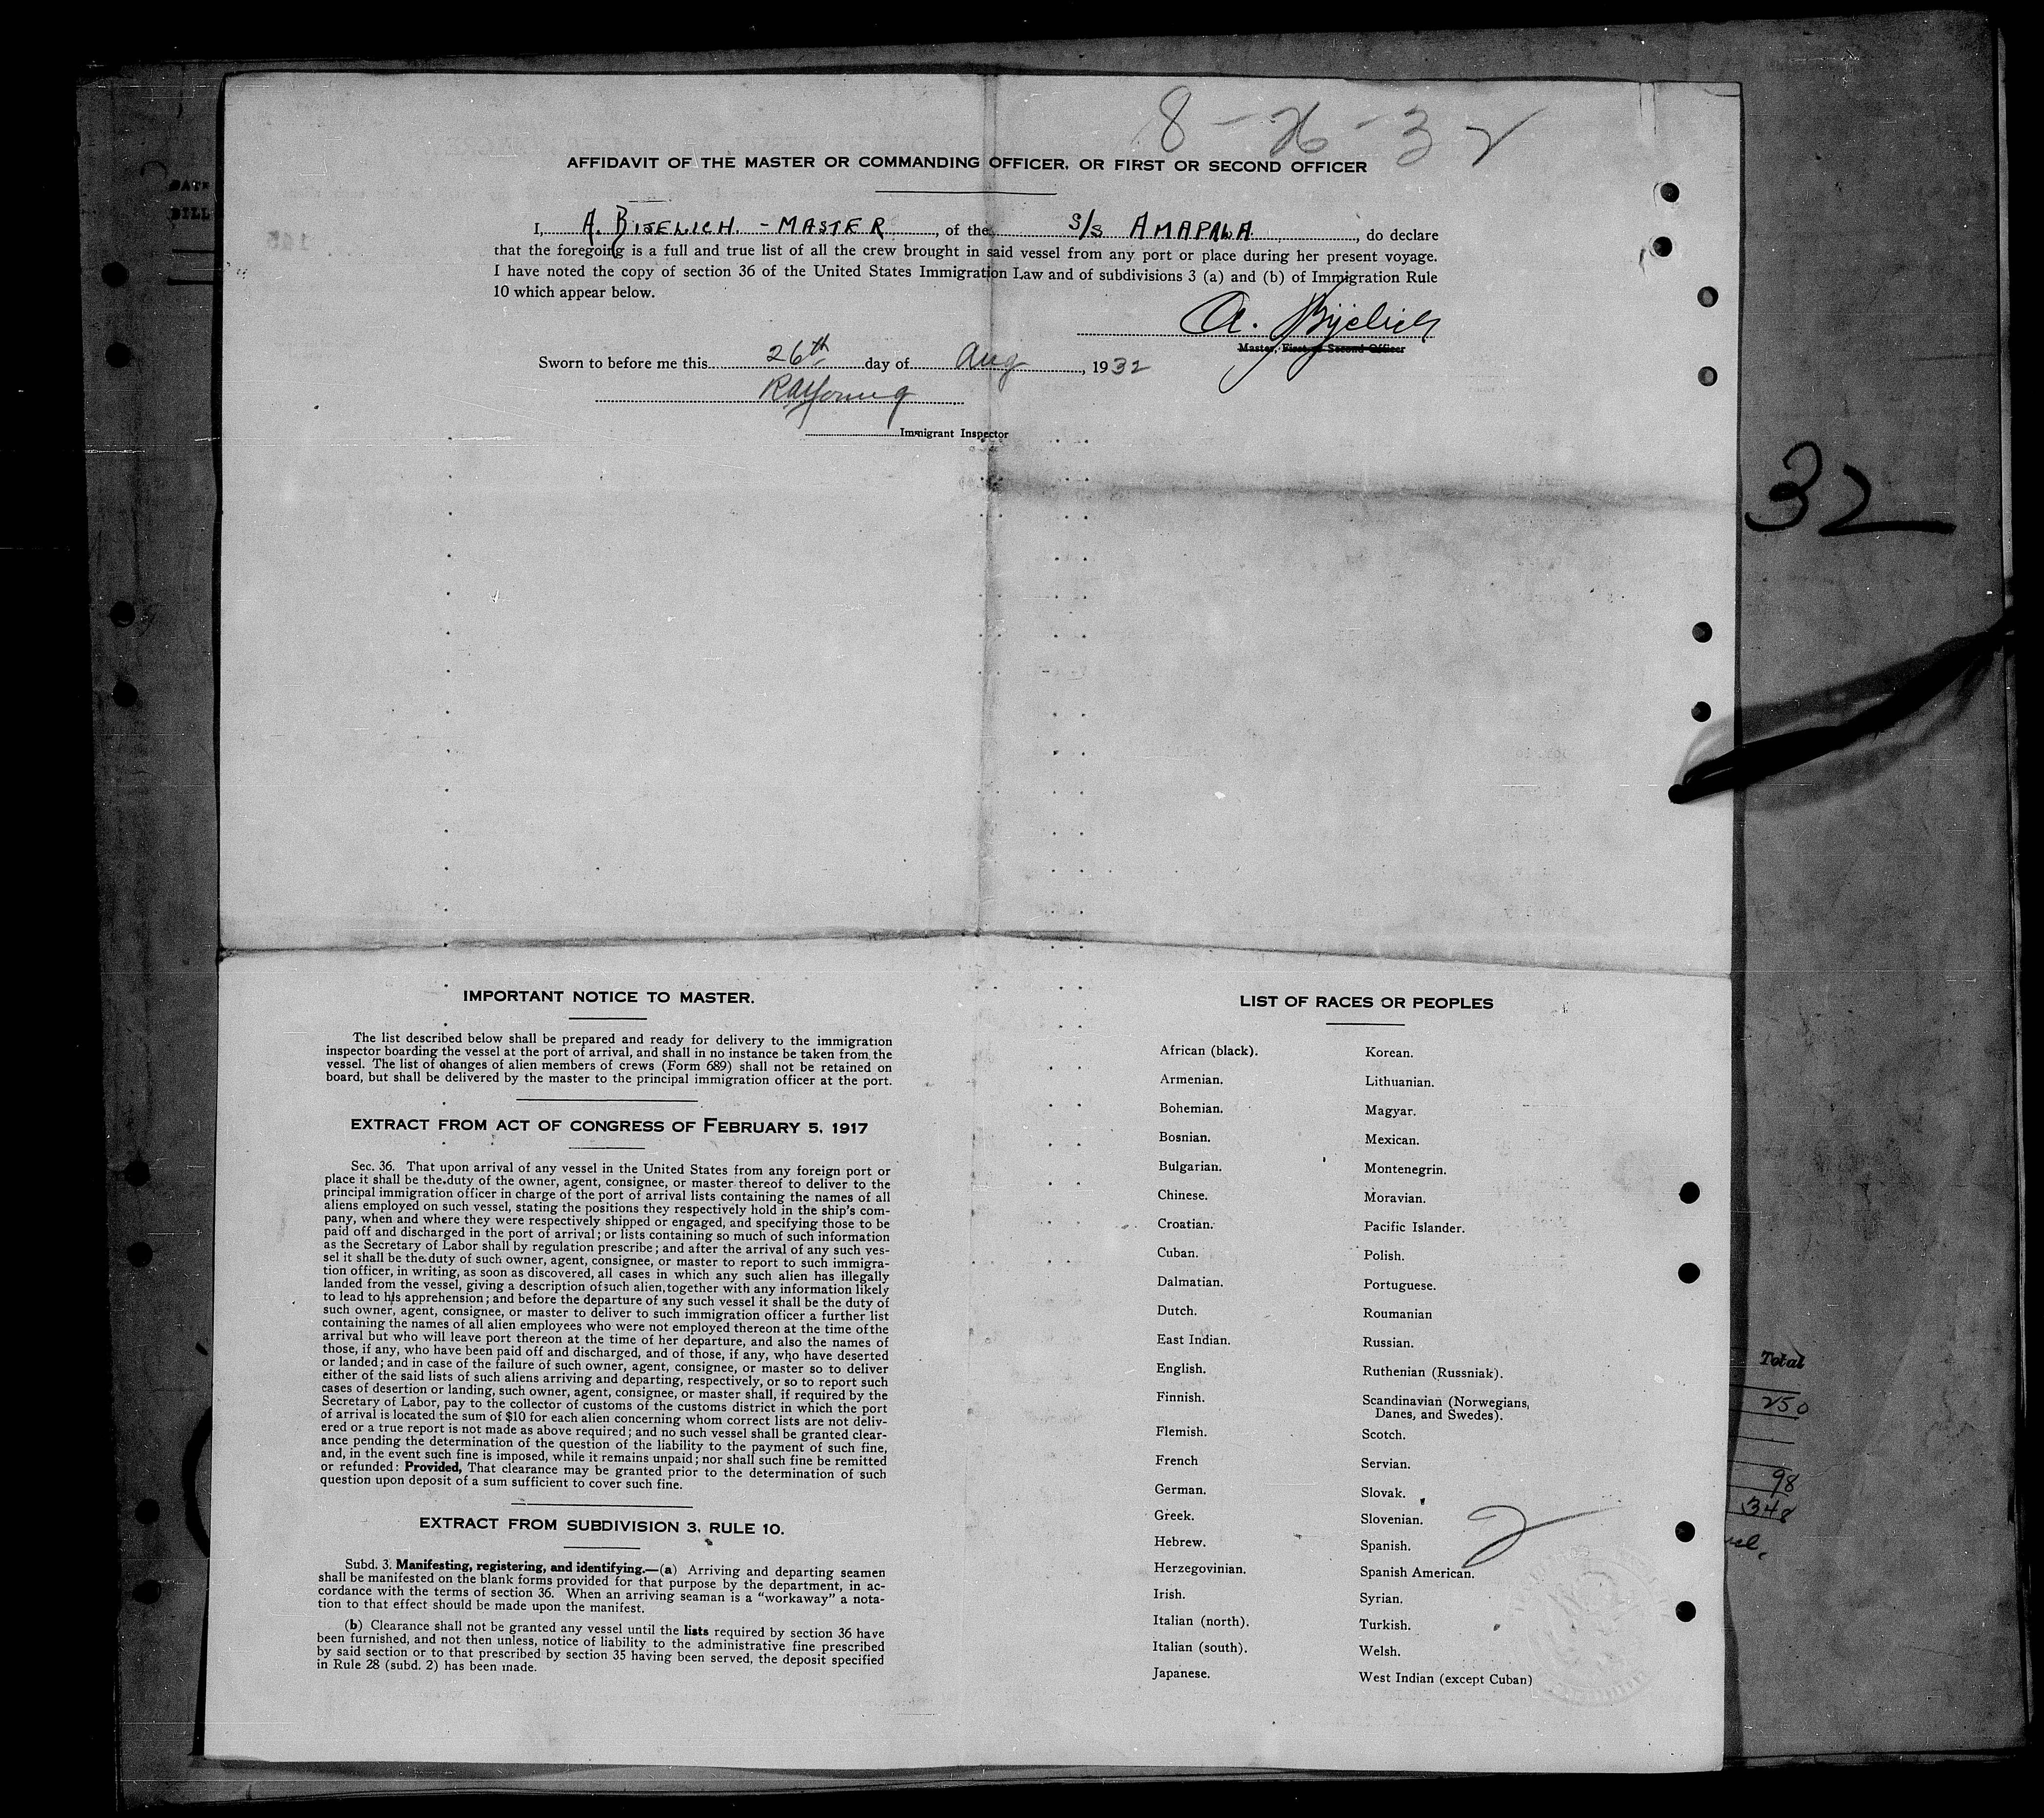 8-26-32
AFFIDAVIT OF THE MASTER OR COMMANDING OFFICER, OR FIRST OR SECOND OFFICER
I, A. BIJELICH. - MASTER, of the S/S AMAPALA, do declare
that the foregoing is a full and true list of all the crew brought in said vessel from any port or place during her present voyage.
I have noted the copy of section 36 of the United States Immigration Law and of subdivisions 3 (a) and (b) of Immigration Rule
10 which appear below.
A. Bijelich
Master, First or Second Officer
Sworn to before me this 26th day of Aug, 1932
RAYoung
Immigrant Inspector
32
IMPORTANT NOTICE TO MASTER.
The list described below shall be prepared and ready for delivery to the immigration
inspector boarding the vessel at the port of arrival, and shall in no instance be taken from the
vessel. The list of changes of alien members of crews (Form 689) shall not be retained on
board, but shall be delivered by the master to the principal immigration officer at the port.
EXTRACT FROM ACT OF CONGRESS OF FEBRUARY 5, 1917
Sec. 36. That upon arrival of any vessel in the United States from any foreign port or
place it shall be the duty of the owner, agent, consignee, or master thereof to deliver to the
principal immigration officer in charge of the port of arrival lists containing the names of all
aliens employed on such vessel, stating the positions they respectively hold in the ship's com-
pany, when and where they were respectively shipped or engaged, and specifying those to be
paid off and discharged in the port of arrival; or lists containing so much of such information
as the Secretary of Labor shall by regulation prescribe; and after the arrival of any such ves-
sel it shall be the duty of such owner, agent, consignee, or master to report to such immigra-
tion officer, in writing, as soon as discovered, all cases in which any such alien has illegally
landed from the vessel, giving a description of such alien, together with any information likely
to lead to his apprehension; and before the departure of any such vessel it shall be the duty of
such owner, agent, consignee, or master to deliver to such immigration officer a further list
containing the names of all alien employees who were not employed thereon at the time of the
arrival but who will leave port thereon at the time of her departure, and also the names of
those, if any, who have been paid off and discharged, and of those, if any, who have deserted
or landed; and in case of the failure of such owner, agent, consignee, or master so to deliver
either of the said lists of such aliens arriving and departing, respectively, or so to report such
cases of desertion or landing, such owner, agent, consignee, or master shall, if required by the
Secretary of Labor, pay to the collector of customs of the customs district in which the port
of arrival is located the sum of $10 for each alien concerning whom correct lists are not deliv-
ered or a true report is not made as above required; and no such vessel shall be granted clear-
ance pending the determination of the question of the liability to the payment of such fine,
and, in the event such fine is imposed, while it remains unpaid; nor shall such fine be remitted
or refunded: Provided, That clearance may be granted prior to the determination of such
question upon deposit of a sum sufficient to cover such fine.
EXTRACT FROM SUBDIVISION 3, RULE 10.
Subd. 3. Manifesting, registering, and identifying.—(a) Arriving and departing seamen
shall be manifested on the blank forms provided for that purpose by the department, in ac-
cordance with the terms of section 36. When an arriving seaman is a "workaway" a nota-
tion to that effect should be made upon the manifest.
(b) Clearance shall not be granted any vessel until the lists required by section 36 have
been furnished, and not then unless, notice of liability to the administrative fine prescribed
by said section or to that prescribed by section 35 having been served, the deposit specified
in Rule 28 (subd. 2) has been made.
LIST OF RACES OR PEOPLES
African (black).
Armenian.
Bohemian.
Bosnian.
Bulgarian.
Chinese.
Croatian.
Cuban.
Dalmatian.
Dutch.
East Indian.
English.
Finnish.
Flemish.
French
German.
Greek.
Hebrew.
Herzegovinian.
Irish.
Italian (north).
Italian (south).
Japanese.
Korean.
Lithuanian.
Magyar.
Mexican.
Montenegrin.
Moravian.
Pacific Islander.
Polish.
Portuguese.
Roumanian
Russian.
Ruthenian (Russniak).
Scandinavian (Norwegians,
Danes, and Swedes).
Scotch.
Servian.
Slovak.
Slovenian.
Spanish.
Spanish American.
Syrian.
Turkish.
Welsh.
West Indian (except Cuban)
2
Total
250
98
348